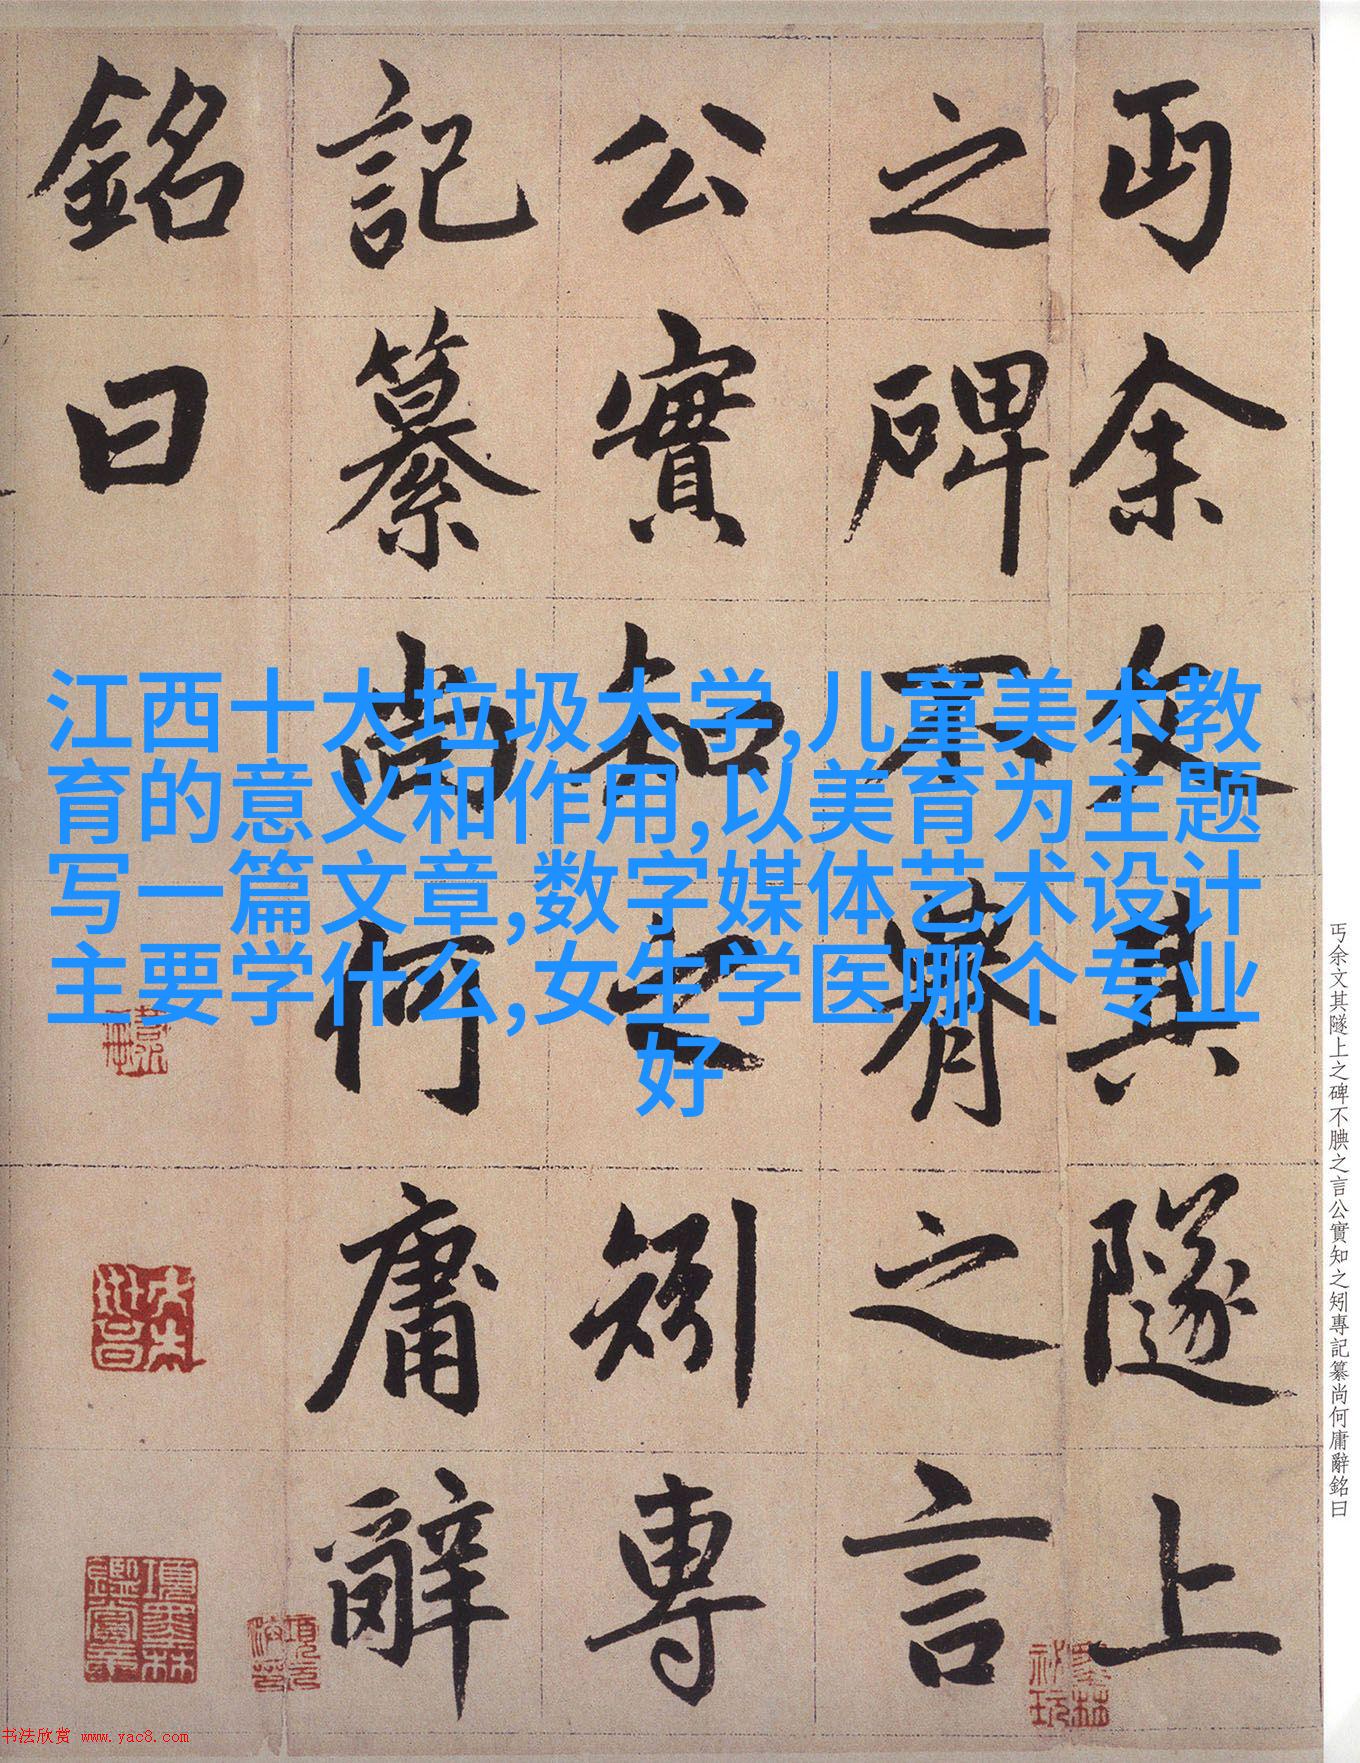 丐余文其隧上
之碑不腆之言
公實知之矧專
記纂尚何庸辭
銘曰
江西十大垃圾大学,儿童美术教
育的意义和作用,以美育为主题
写一篇文章,数字媒体艺术设计
主要学什么,女生学医哪个专业
好
丐余文其隧上之碑不腆之言公實知之矧專記纂尚何庸辭銘曰
項墨林鑑賞章
墨林祕玩
书法欣赏 www.yac8.com